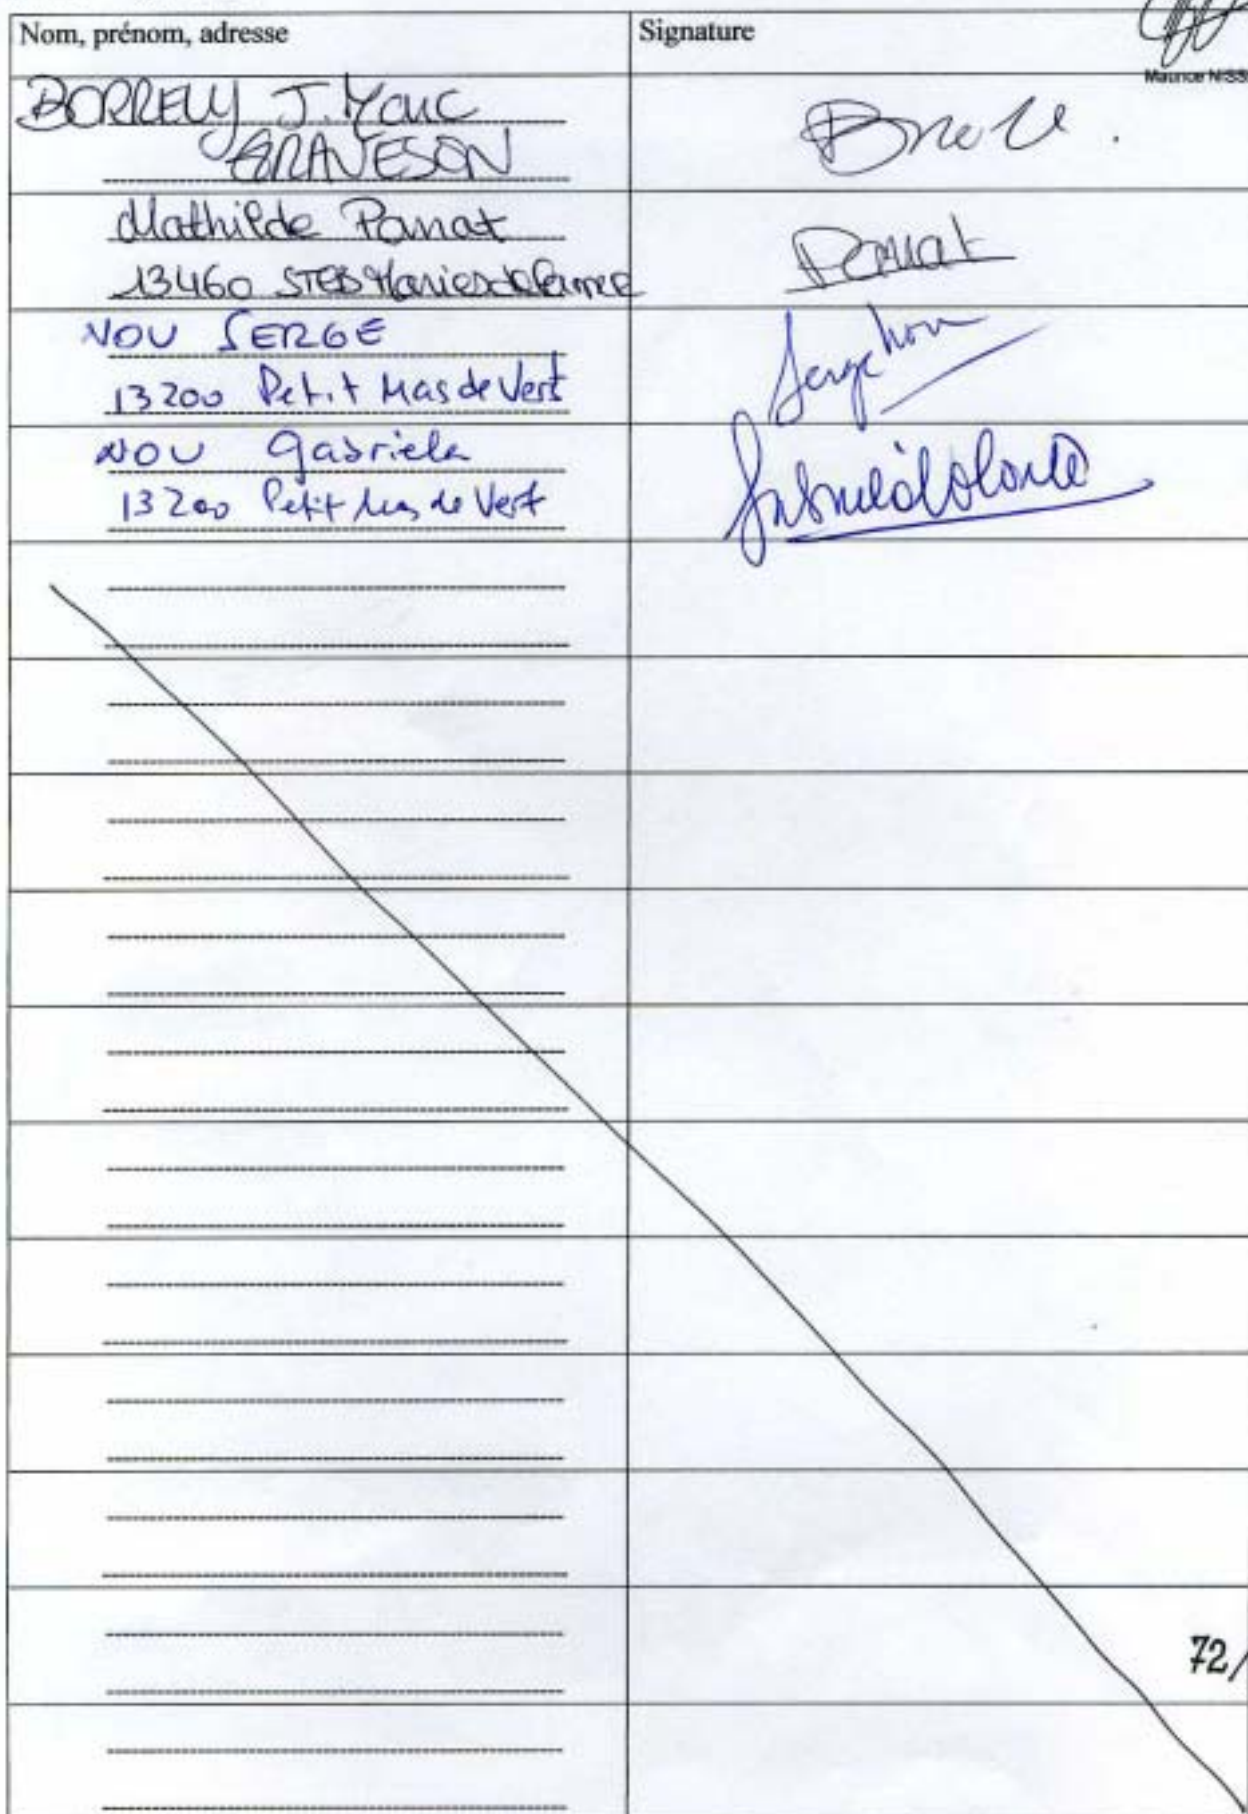 Nom, prénom, adresse
Signature
Maurice NISS
BORRELY J. Marc
GRAVESON
Mathilde Pannat
13460 STES Maries de la mer
NOU SERGE
13200 Petit Mas de Vert
Serge Nou
NOU Gabriela
13200 Petit Mas de Vert
72/